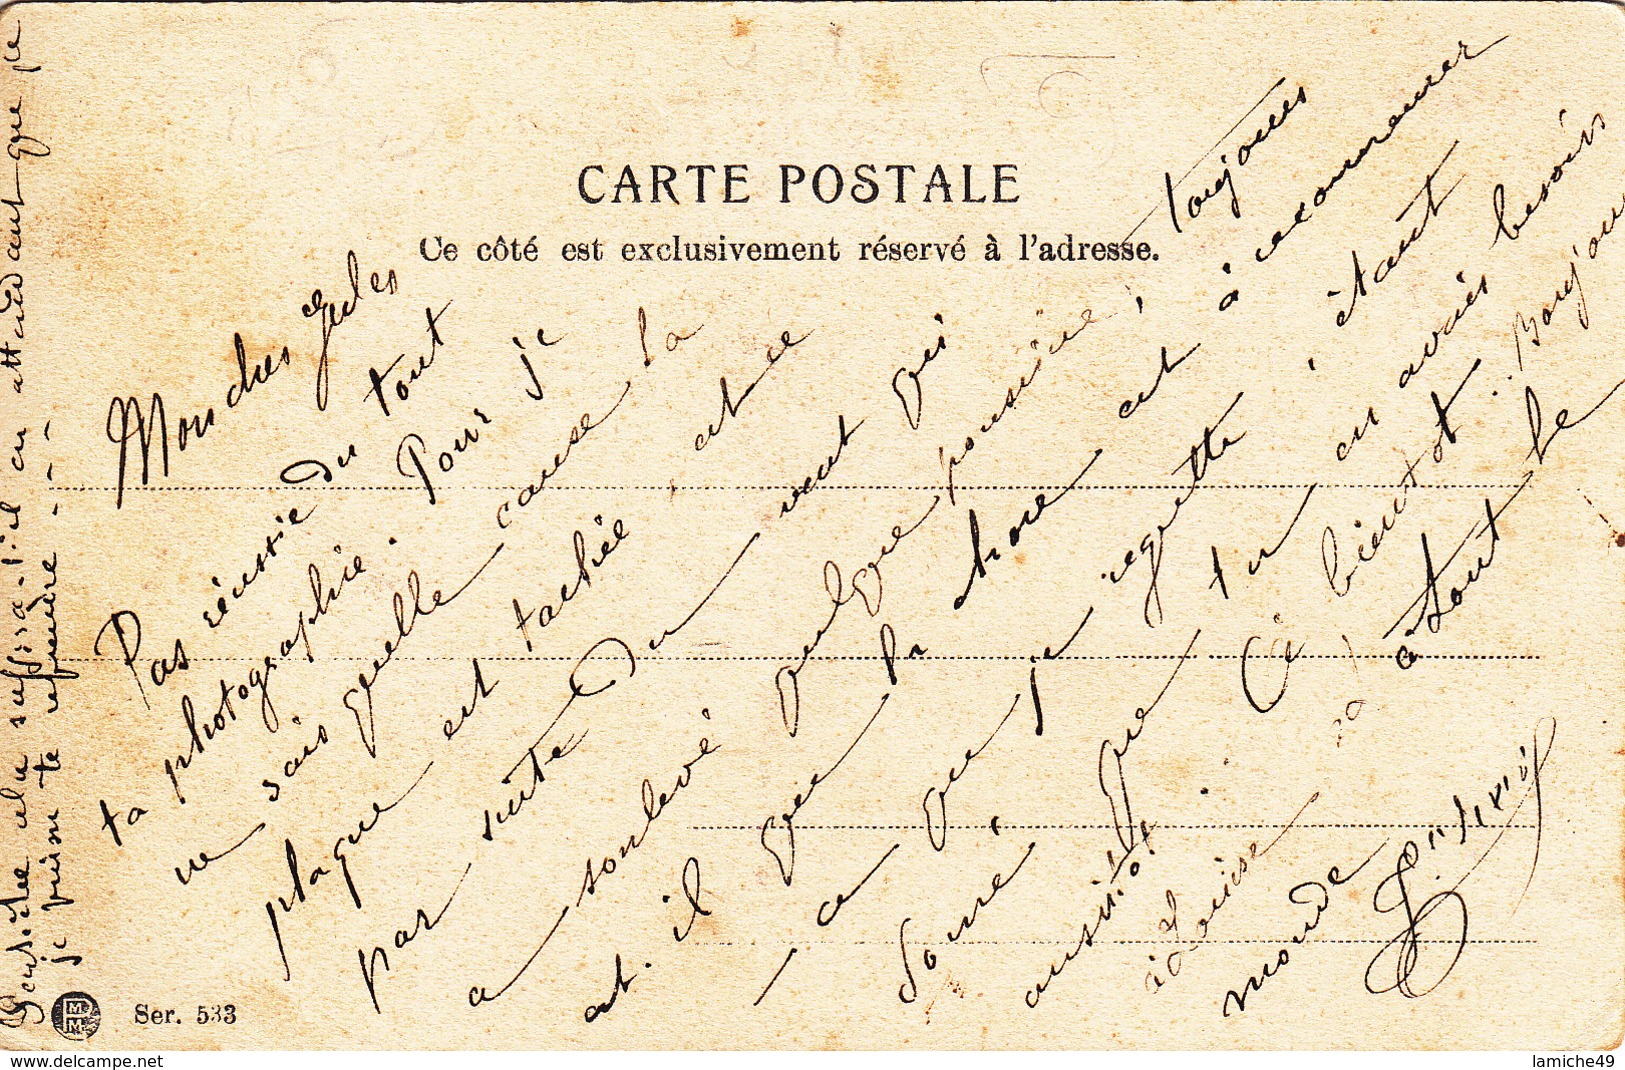 CARTE POSTALE
Ce côté est exclusivement réservé à l'adresse.
Mon cher Jules
Pas réussie du tout
ta photographie. Pour je
ne sais quelle cause la
plaque est tachée, est ce
par suite du vent qui
a soulevé quelque poussière, toujours
est. il que la chose est à recommencer
ce que je regrette, étant
donné que tu en avais besoin
aussitôt. à bientôt. Bonjour
à Louise à tout le
monde
Peut-être cela suffira-t-il en attendant que je
je puisse te refaire - - -
Ser. 533
lamiche49
http://www.delcampe.net